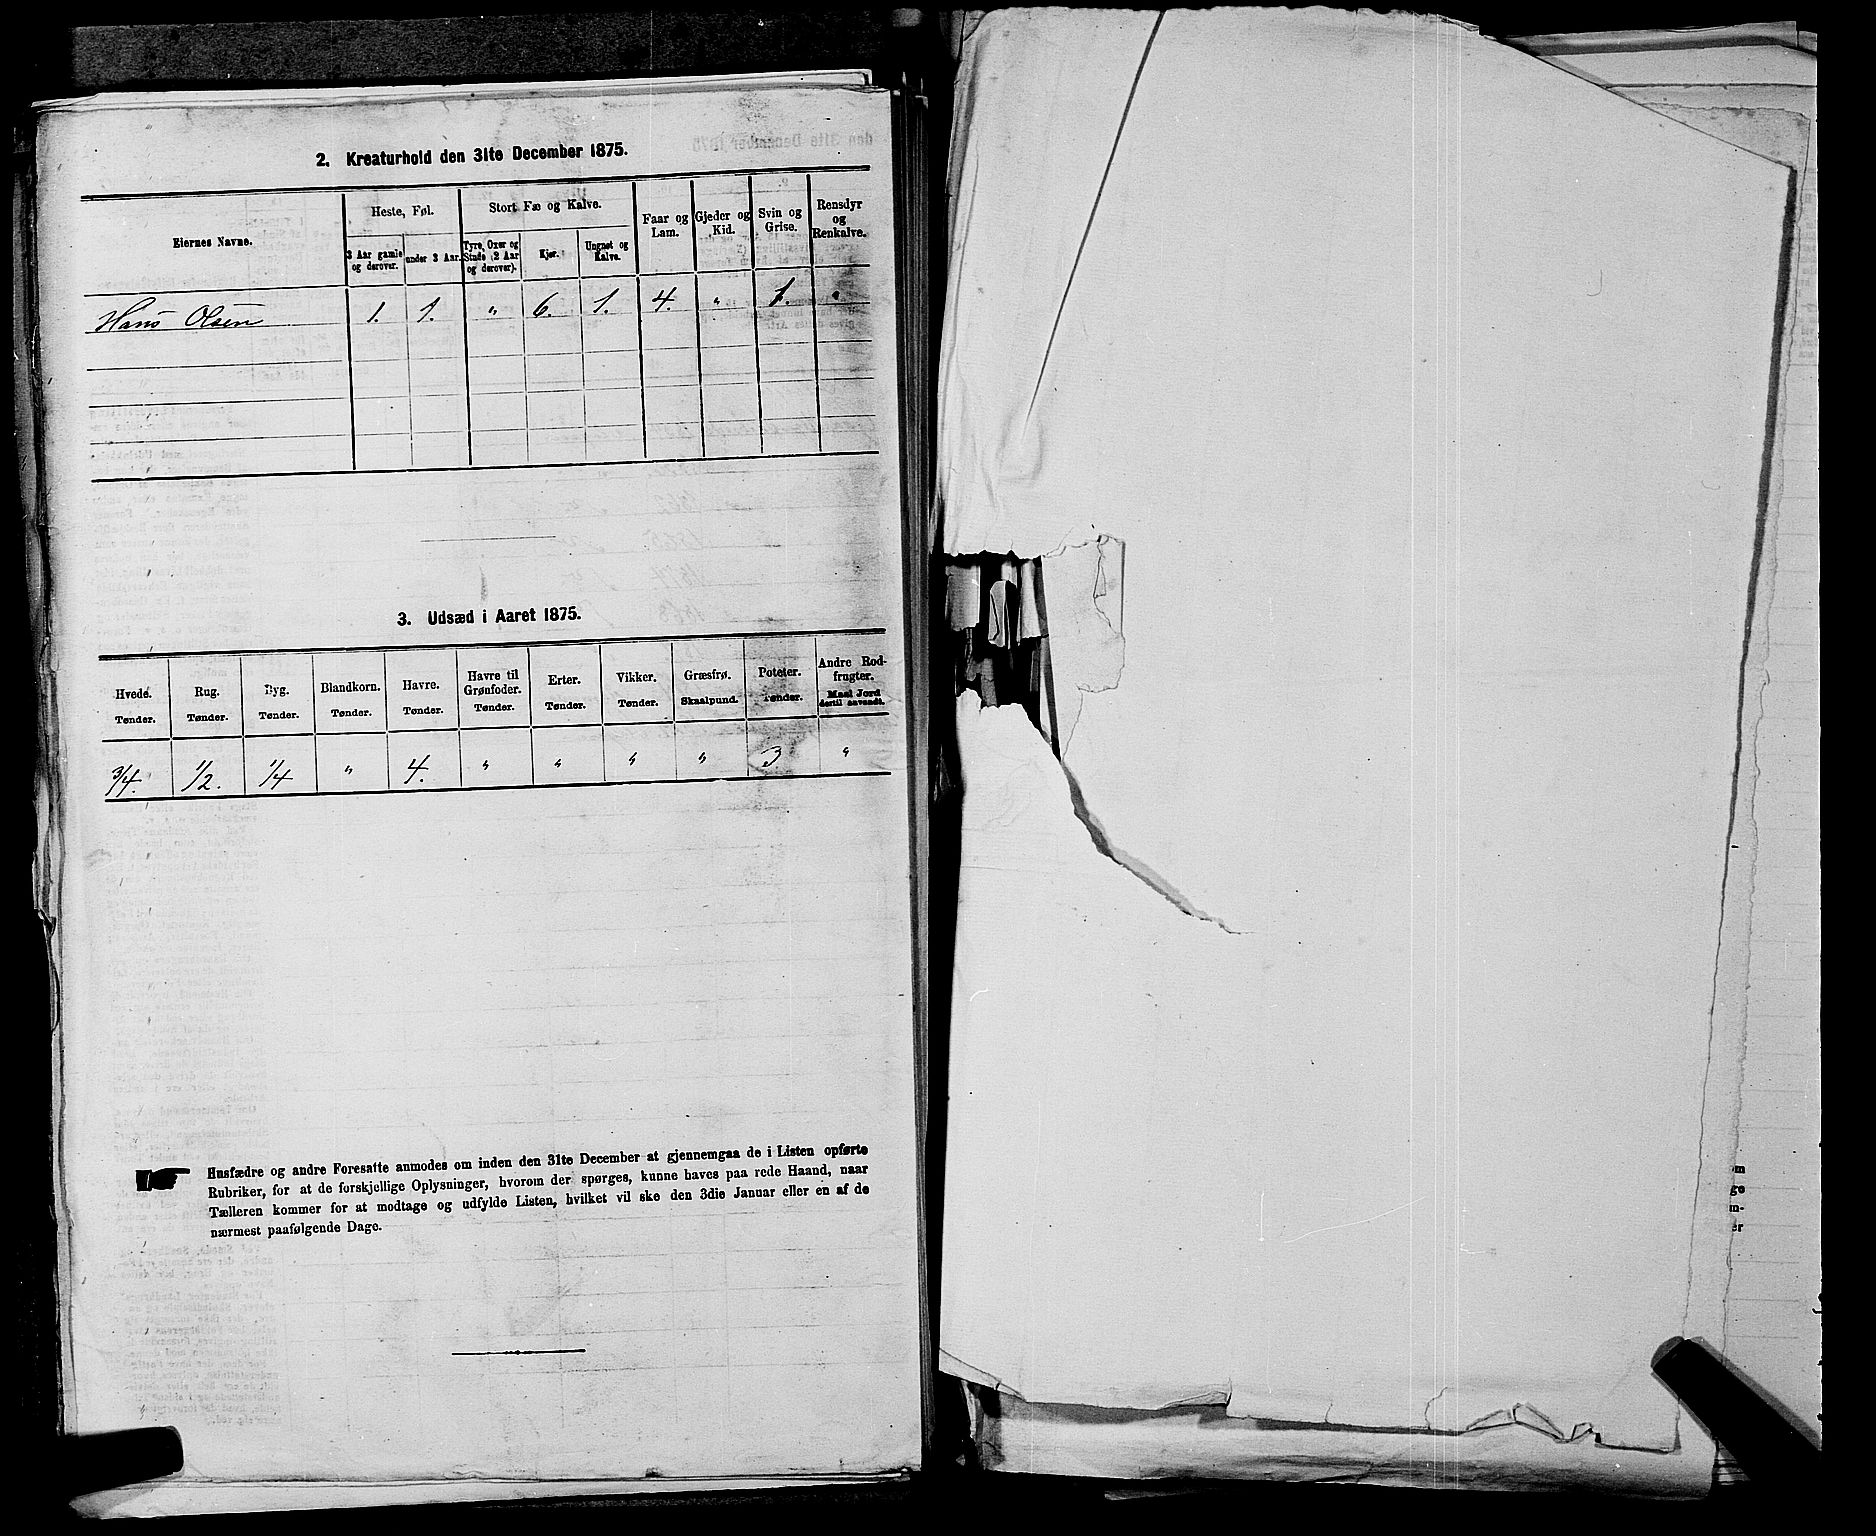 2. Kreaturhold den 31te December 1875.
Eiernes Navne. Heste, Føl. Stort Fæ og Kalve. Faar og Lam. Gjeder og Kid. Svin og Grise. Rensdyr og Renkalve.
3 Aar gamle og derover. under 3 Aar. Tyre, Oxer og Stude (2 Aar og derover). Kjør. Ungnøt og Kalve.
Hans Olsen 1. 1. " 6. 1. 4. " 1. "
3. Udsæd i Aaret 1875.
Hvede. Rug. Byg. Blandkorn. Havre. Havre til Grønfoder. Erter. Vikker. Græsfrø. Poteter. Andre Rodfrugter.
Tønder. Tønder. Tønder. Tønder. Tønder. Tønder. Tønder. Tønder. Skaalpund. Tønder. Maal Jord dertil anvendt.
3/4. 1/2. 1/4 " 4. " " " " 3 "
Husfædre og andre Foresatte anmodes om inden den 31te December at gjennemgaa de i Listen opførte
Rubriker, for at de forskjellige Oplysninger, hvorom der spørges, kunne haves paa rede Haand, naar
Tælleren kommer for at modtage og udfylde Listen, hvilket vil ske den 3die Januar eller en af de
nærmest paafølgende Dage.